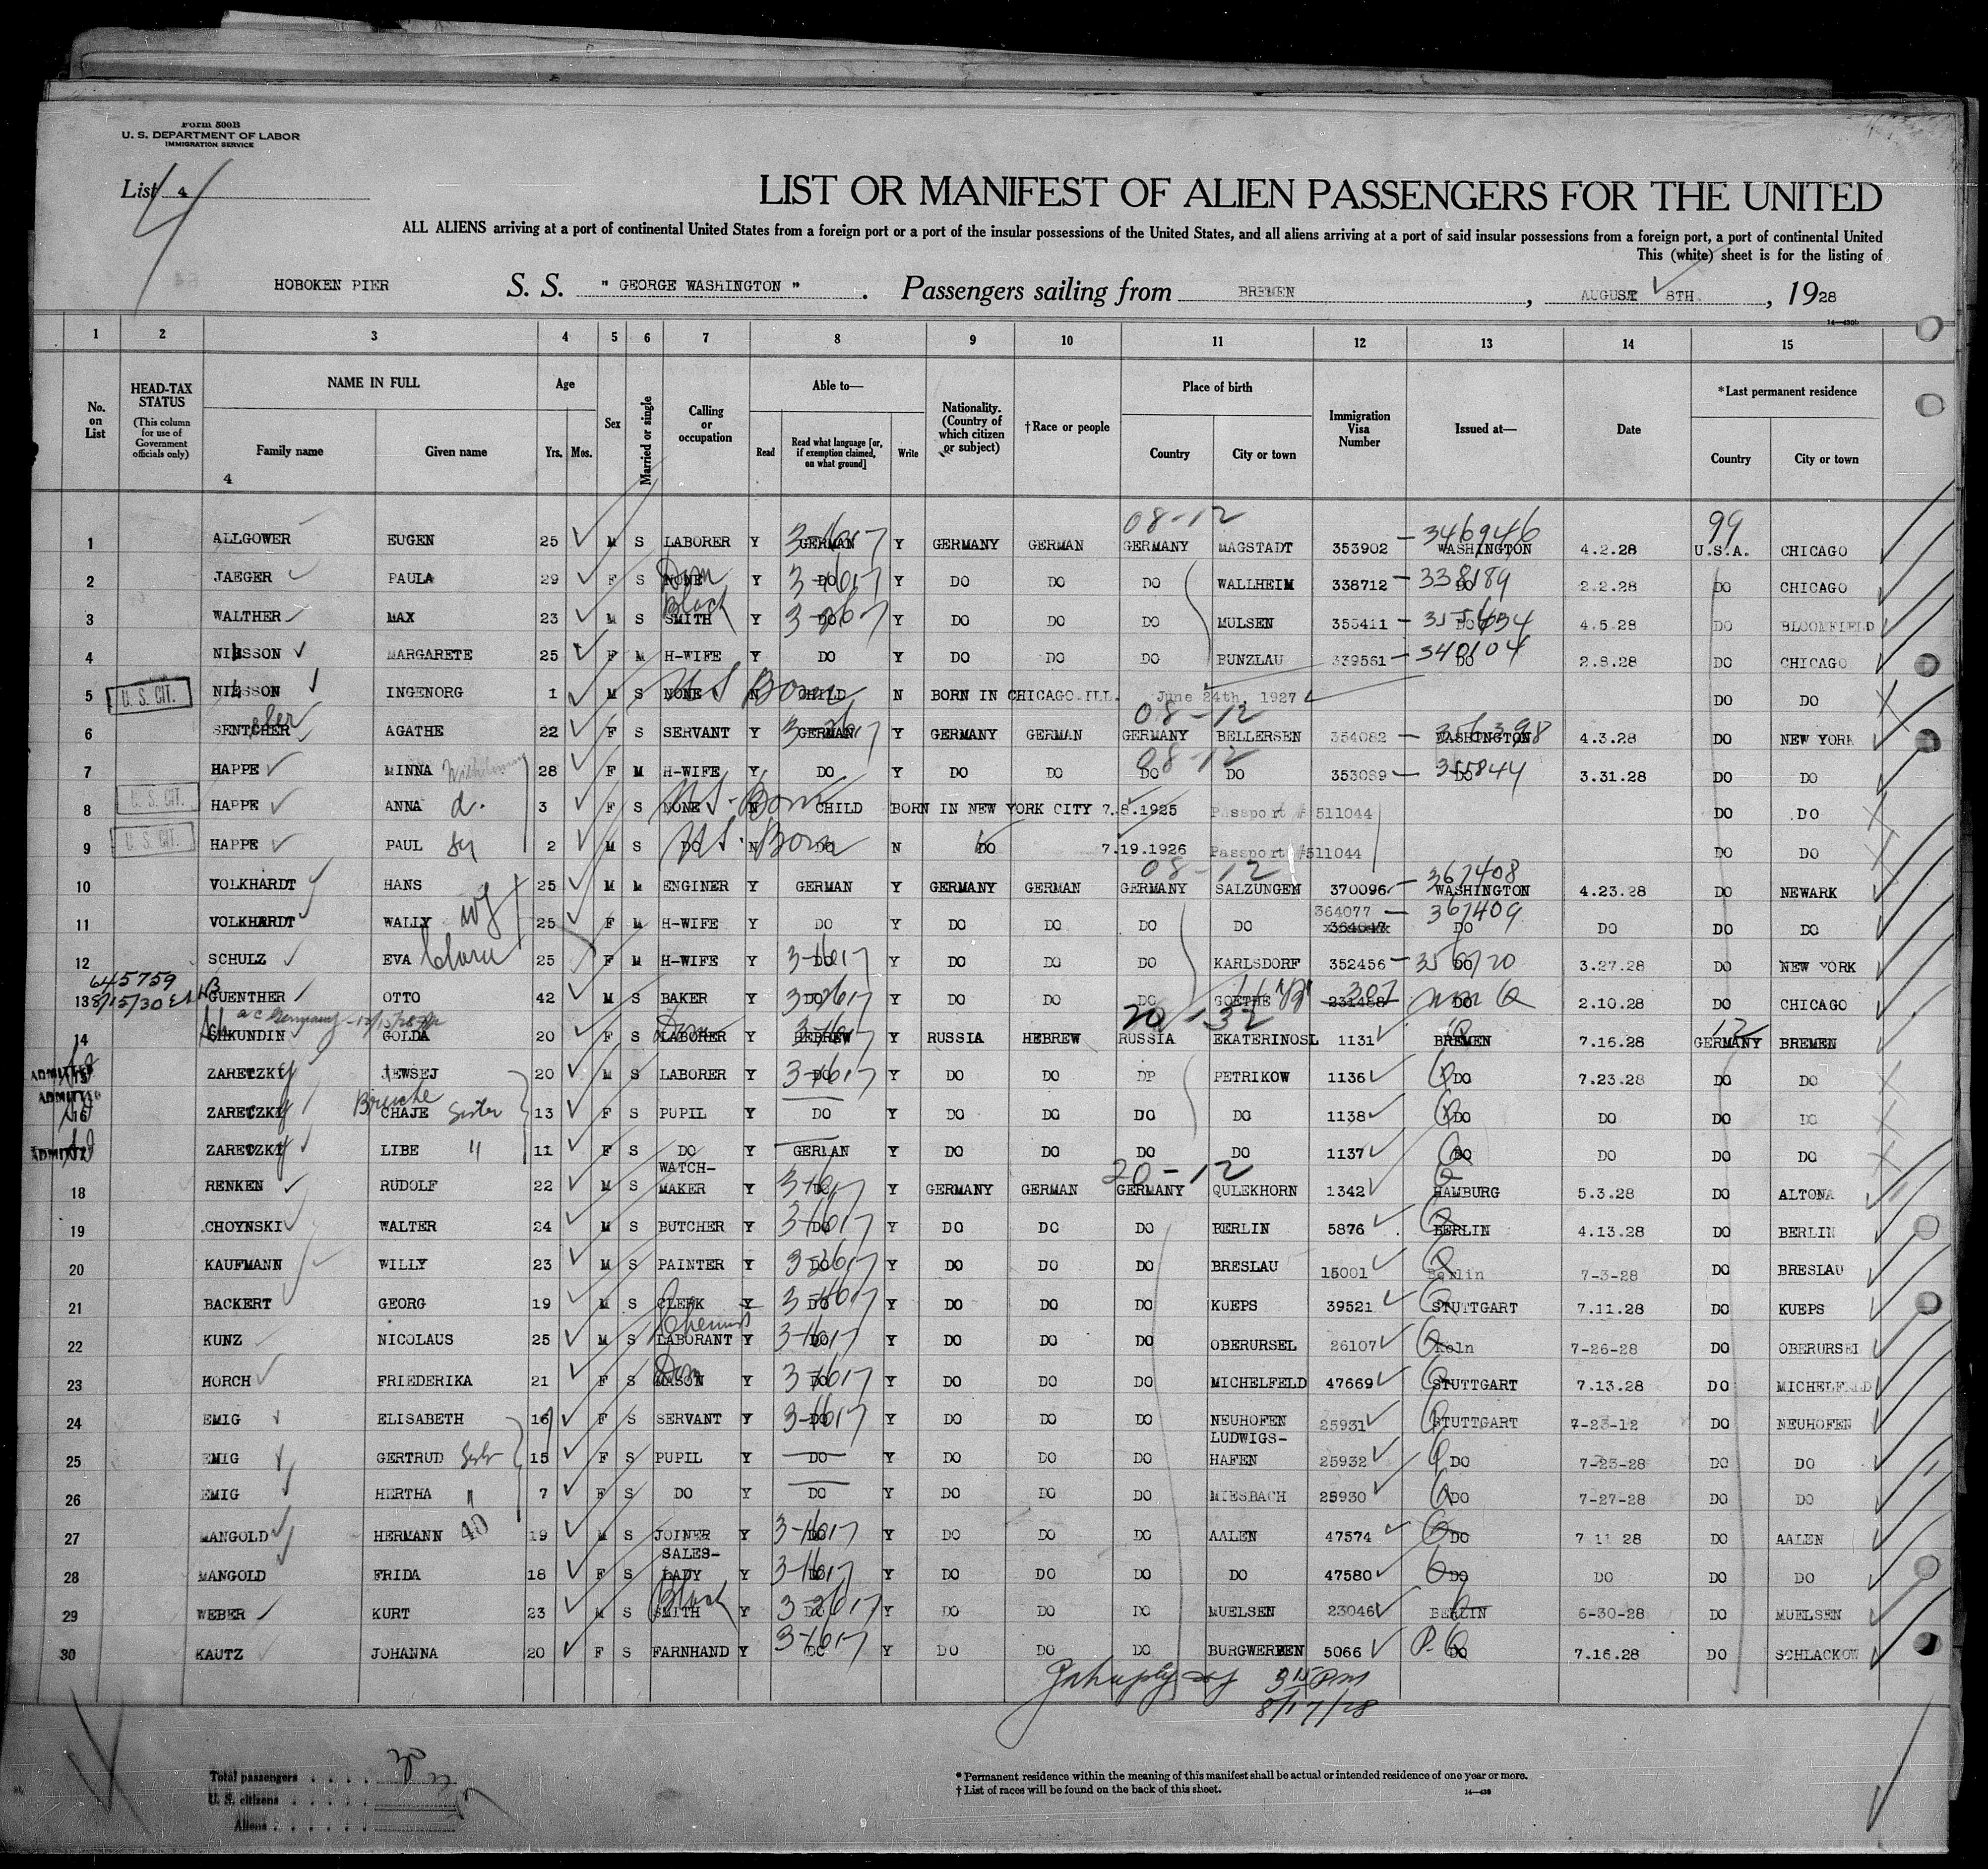 Form 500B
U. S. DEPARTMENT OF LABOR
IMMIGRATION SERVICE
List 4
4
LIST OR MANIFEST OF ALIEN PASSENGERS FOR THE UNITED
ALL ALIENS arriving at a port of continental United States from a foreign port or a port of the insular possessions of the United States, and all aliens arriving at a port of said insular possessions from a foreign port, a port of continental United
This (white) sheet is for the listing of
HOBOKEN PIER S. S. " GEORGE WASHINGTON " . Passengers sailing from BREMEN , AUGUST 8TH. , 1928
1 2 3 4 5 6 7 8 9 10 11 12 13 14 15
No. on List
HEAD-TAX STATUS (This column for use of Government officials only)
NAME IN FULL Family name Given name
4
Age Yrs. Mos.
Sex
Married or single
Calling or occupation
Able to— Read Read what language [or, if exemption claimed, on what ground] Write
Nationality. (Country of which citizen or subject)
†Race or people
Place of birth Country City or town
Immigration Visa Number
Issued at—
Date
*Last permanent residence Country City or town
08-12 346946 99
1 ALLGOWER EUGEN 25 M S LABORER Y GERMAN Y GERMANY GERMAN GERMANY MAGSTADT 353902 WASHINGTON 4.2.28 U.S.A. CHICAGO
2 JAEGER PAULA 29 F S NONE Dom Y DO Y DO DO DO WALLHEIM 338712 338189 DO 2.2.28 DO CHICAGO
3 WALTHER MAX 23 M S Black SMITH Y DO Y DO DO DO MULSEN 355411 DO 4.5.28 DO BLOOMFIELD
4 NILSSON MARGARETE 25 F M H-WIFE Y DO Y DO DO DO BUNZLAU 339561 340104 DO 2.8.28 DO CHICAGO
U. S. CIT. 5 NILSSON INGENORG 1 M S NONE US Born N CHILD N BORN IN CHICAGO.ILL. June 24th, 1927 DO DO
08-12
6 SENTCHER AGATHE 22 F S SERVANT Y GERMAN Y GERMANY GERMAN GERMANY BELLERSEN 354082 WASHINGTON 4.3.28 DO NEW YORK
08-12
7 HAPPE MINNA 28 F M H-WIFE Y DO Y DO DO DO DO 353089 355844 DO 3.31.28 DO DO
U. S. CIT. 8 HAPPE ANNA d. 3 F S NONE US. Born N CHILD BORN IN NEW YORK CITY 7.8.1925 Passport # 511044 DO DO
U. S. CIT. 9 HAPPE PAUL 2 M S DO US. Born N DO N DO 7.19.1926 Passport #511044 DO DO
08-12 367408
10 VOLKHARDT HANS 25 M M ENGINER Y GERMAN Y GERMANY GERMAN GERMANY SALZUNGEN 370096 WASHINGTON 4.23.28 DO NEWARK
11 VOLKHARDT WALLY wf 25 F M H-WIFE Y DO Y DO DO DO DO 364077 367409 DO DO DO DO
12 SCHULZ EVA Clara 25 F M H-WIFE Y DO Y DO DO DO KARLSDORF 352456 DO 3.27.28 DO NEW YORK
645759
13 8/15/30 GUENTHER OTTO 42 M S BAKER Y DO Y DO DO DO GOETHE 231488 307 DO 2.10.28 DO CHICAGO
20 132 12
14 SHKUNDIN GOLDA 20 F S LABORER Dom Y HEBREW Y RUSSIA HEBREW RUSSIA EKATERINOSL 1131 BREMEN 7.16.28 GERMANY BREMEN
ADMITTED 15 ZARETZKY JEWSEJ 20 M S LABORER Y DO Y DO DO DO PETRIKOW 1136 DO 7.23.28 DO DO
ADMITTED 16 ZARETZKY CHAJE Sister 13 F S PUPIL Y DO Y DO DO DO DO 1138 DO DO DO DO
ADMITTED ZARETZKY LIBE " 11 F S DO Y GERLAN Y DO DO DO DO 1137 DO DO DO DO
20-12
18 RENKEN RUDOLF 22 M S WATCH-MAKER Y DO Y GERMANY GERMAN GERMANY QULEKHORN 1342 HAMBURG 5.3.28 DO ALTONA
19 CHOYNSKI WALTER 24 M S BUTCHER Y DO Y DO DO DO BERLIN 5876 BERLIN 4.13.28 DO BERLIN
20 KAUFMANN WILLY 23 M S PAINTER Y DO Y DO DO DO BRESLAU 15001 Berlin 7-3-28 DO BRESLAU
21 BACKERT GEORG 19 M S CLERK Y DO Y DO DO DO KUEPS 39521 STUTTGART 7.11.28 DO KUEPS
22 KUNZ NICOLAUS 25 M S Chemist LABORANT Y DO Y DO DO DO OBERURSEL 26107 Koln 7-26-28 DO OBERURSEL
23 HORCH FRIEDERIKA 21 F S MASON Dom Y DO Y DO DO DO MICHELFELD 47669 STUTTGART 7.13.28 DO MICHELFELD
24 EMIG ELISABETH 16 F S SERVANT Y DO Y DO DO DO NEUHOFEN 25931 STUTTGART 7-23-12 DO NEUHOFEN
25 EMIG GERTRUD 15 F S PUPIL Y DO Y DO DO DO LUDWIGS-HAFEN 25932 DO 7-23-28 DO DO
26 EMIG HERTHA " 7 F S DO Y DO Y DO DO DO MIESBACH 25930 DO 7-27-28 DO DO
27 MANGOLD HERMANN 40 19 M S JOINER Y DO Y DO DO DO AALEN 47574 DO 7 11 28 DO AALEN
28 MANGOLD FRIDA 18 F S SALES-LADY Y DO Y DO DO DO DO 47580 DO DO DO DO
29 WEBER KURT 23 M S Black SMITH Y DO Y DO DO DO MUELSEN 23046 BERLIN 6-30-28 DO MUELSEN
30 KAUTZ JOHANNA 20 F S FARNHAND Y DO Y DO DO DO BURGWERBEN 5066 DO 7.16.28 DO SCHLACKOW
3 15 PM
8/17/28
Total passengers . . . . 30
U. S. citizens . . . . .
Aliens . . . . . .
* Permanent residence within the meaning of this manifest shall be actual or intended residence of one year or more.
† List of races will be found on the back of this sheet.